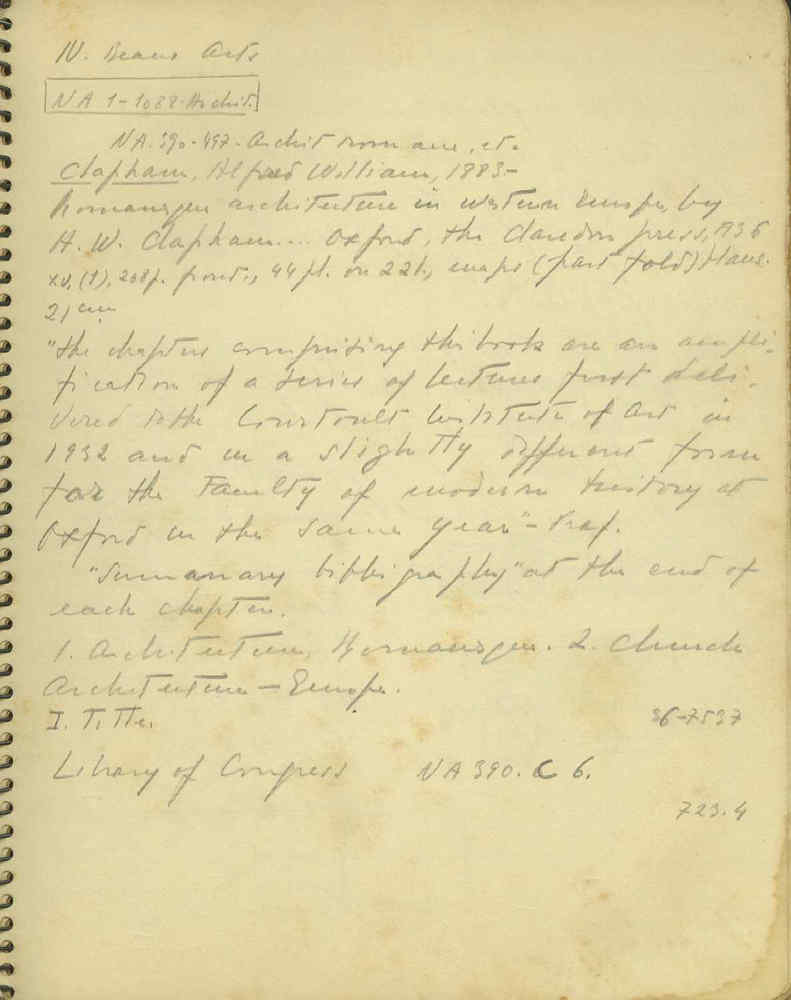 IV. Beaux Arts
NA 1-1088-Archit.
NA.390-497-Archit romane, etc.
Clapham, Alfred William, 1883-
Romanesque architecture in western Europe, by
A. W. Clapham.... Oxford, the Clarendon press, 1936
xv, (1), 208p. front., 44 pl. on 22 l., maps (part fold) plans.
21 cm
"the chapters comprising this book are an ampli-
fication of a series of lectures first deli-
vered to the Courtauld Institute of Art in
1932 and in a slightly different form
for the Faculty of modern history at
Oxford in the same year"-Pref.
"Summary bibliography" at the end of
each chapter.
1. Architecture, Romanesque. 2. Church
Architecture - Europe.
I. Title.
36-7537
Library of Congress NA 390. C 6.
723.4